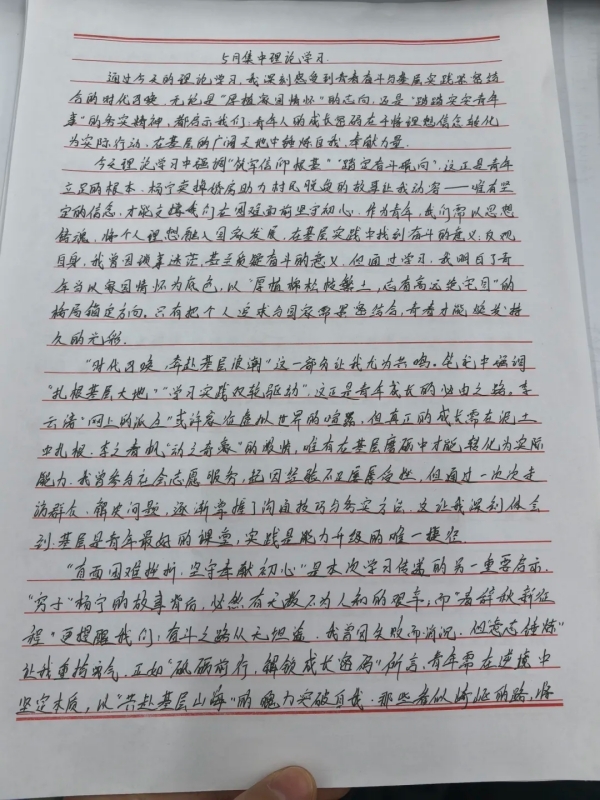 5月集中理论学习.
通过今天的理论学习,我深刻感受到青春奋斗与基层实践紧密结
合的时代召唤.无论是"厚植家国情怀"的志向,还是"踏踏实实青年
"的务实精神,都启示我们:青年人的成长密码在于将理想信念转化
为实际行动.在基层的广阔天地中锤炼自我,奉献力量.
今天理论学习中强调"筑牢信仰根基""踏定奋斗航向",这正是青年
立足的根本.杨宁助力村民脱贫的故事让我动容——唯有坚
定的信念,才能支撑我们在困难面前坚守初心.作为青年,我们需以思想
铸魂,将个人理想融入国家发展,在基层实践中找到奋斗的意义.反观
自身,我曾因迷茫,甚至质疑奋斗的意义,但通过学习,我明白了青
年当以家国情怀为底色,以"厚植,志有高远"的
格局锚定方向.只有把个人追求与国家需要紧密结合,青春才能焕发持
久的光彩.
"时代召唤,奔赴基层浪潮"这一部分让我尤为共鸣.中强调
"扎根基层大地""学习实践双轮驱动",这正是青年成长的必由之路.李
云"向上的"或许容虚拟世界的喧嚣,但真正的成长需在泥土
中扎根.李之"动之青春"的激情,唯有在基层磨砺中才能转化为实际
能力.我曾参与社会志愿服务,起因经验不足屡屡受挫,但通过一次次走
访群众、解决问题,逐渐掌握了沟通技巧与务实方法.这让我深刻体会
到:基层是青年最好的课堂,实践是能力升级的唯一捷径.
"直面困难挫折,坚守奉献初心"是本次学习传递的另一重要启示.
杨宁的故事背后,必然有无数不为人知的艰辛,而"新征
程"更提醒我们:奋斗之路从无坦途.我曾因失败而消沉,但"意志锤炼"
让我重拾勇气.正如"砥砺前行,解锁成长密码"所言,青年需在逆境中
坚定本质,以"共赴基层山海"的魄力突破自我.那些看似的路,将